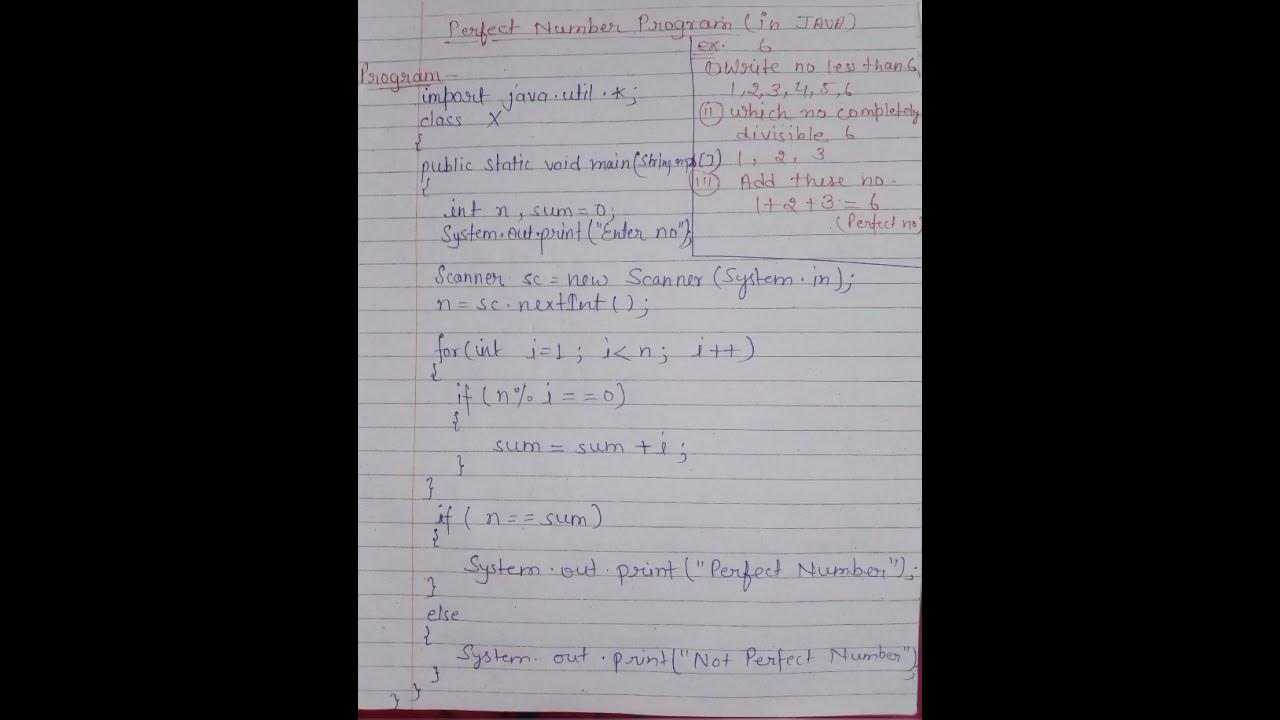 Perfect Number Program (in JAVA)
Program-
import java.util.*;
class X
{
public static void main(String args[])
{
int n, sum=0;
System.out.print("Enter no");
Scanner sc = new Scanner(System.in);
n = sc.nextInt();
for(int i=1; i<n; i++)
{
if (n% i ==0)
{
sum = sum + i;
}
}
if ( n == sum)
{
System.out.print("Perfect Number");
}
else
{
System.out.print("Not Perfect Number")
;
}
} }
ex. 6
i) Write no less than 6
1,2,3,4,5,6
(ii) which no completely
divisible 6
1, 2, 3
(iii) Add these no-
1+2+3 = 6
(Perfect no)